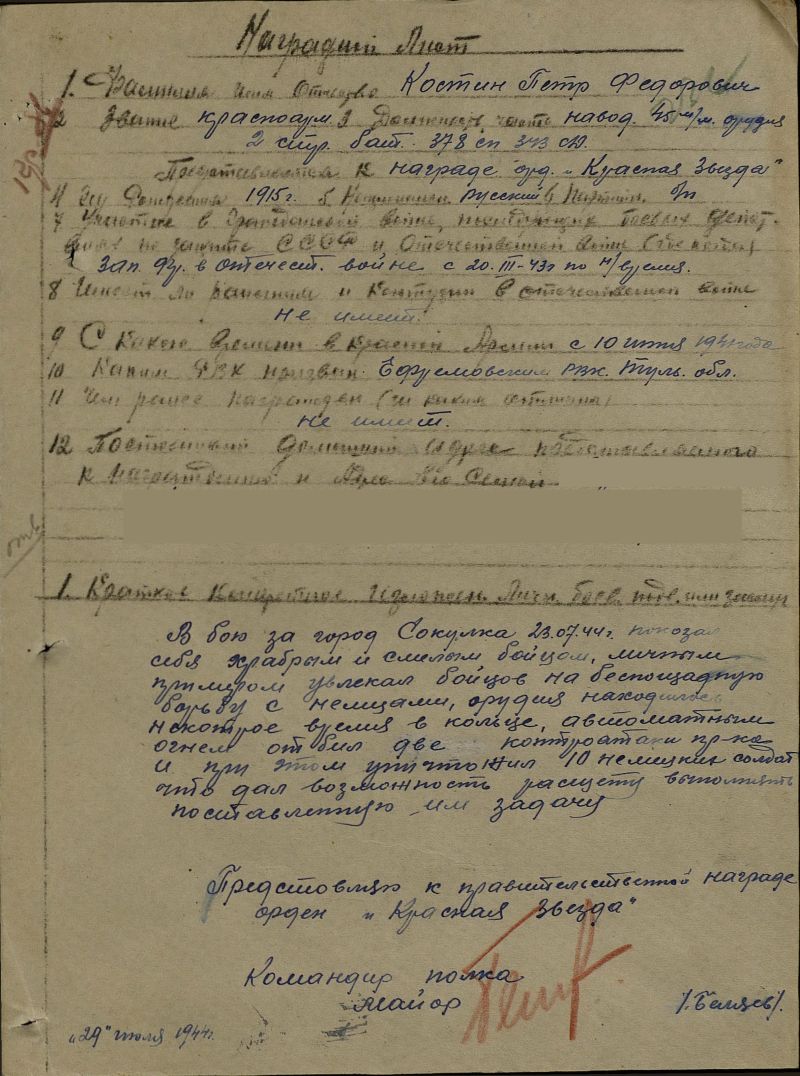 Наградной Лист
1. Фамилия Имя Отчество Костин Петр Федорович
2 Звание красноарм. 3 Должность, часть навод. 45 м/м. орудия
2 стр. бат. 378 сп 343 сд.
Представляется к награде орд. „Красная Звезда"
4 Год Рождения 1915г. 5. Национальн. русский 6 Партийн. б/п
7 Участие в Гражданской войне, последующих боевых дейст-
виях по защите СССР и Отечественной войне (где когда)
Зап. фр. в отечест. войне с 20.III-43г по н/время.
8 Имеет ли ранения и контузии в отечественной войне
не имеет.
9 С какого времени в красной Армии с 10 июля 1941 года
10 Каким РВК призван Ефремовским РВК. Туль. обл.
11 Чем ранее награжден (за какие отличия)
не имеет.
12 Постоянный домашний адрес представляемого
к награждению и Адрес его семьи
отв
1. Краткое конкретное изложен. личн. боев. подв. или заслуг
В бою за город Сокулка 23.07.44г. показал
себя храбрым и смелым бойцом, личным
примером увлекал бойцов на беспощадную
борьбу с немцами, орудия находилось
некоторое время в кольце, автоматным
огнем отбил две контроатаки пр-ка
и при этом уничтожил 10 немецких солдат
что дал возможность расщету выполнять
поставленную им задачу
Предстовляю к правительственной награде
орден „Красная Звезда"
Командир полка
Майор /.Беляев/.
„29" июля 1944г.